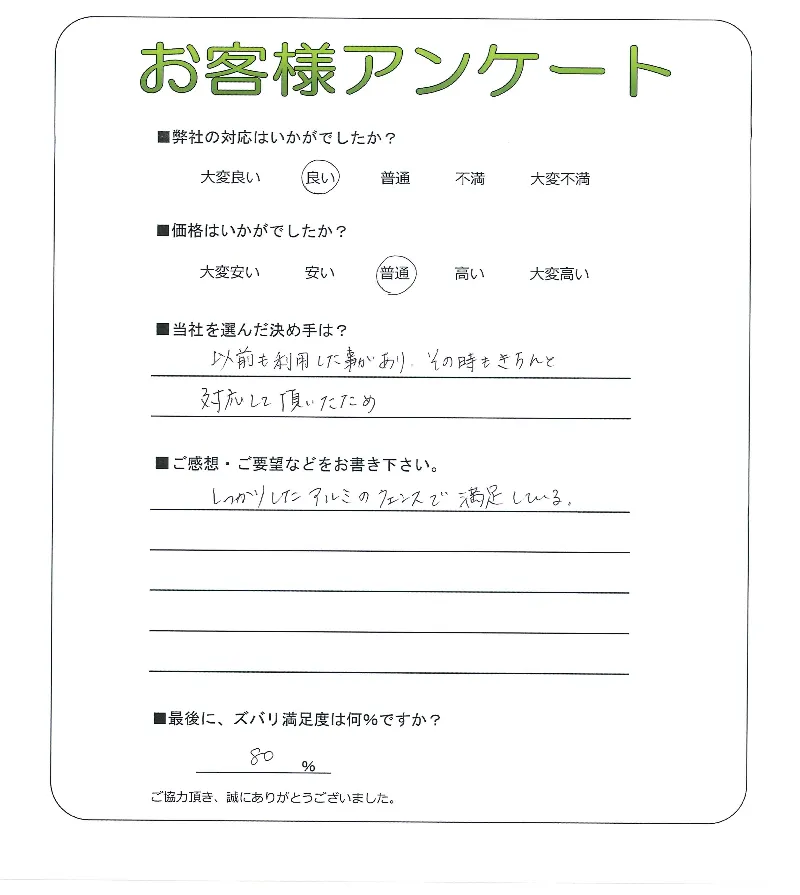 お客様アンケート
■弊社の対応はいかがでしたか？
大変良い 良い 普通 不満 大変不満
■価格はいかがでしたか？
大変安い 安い 普通 高い 大変高い
■当社を選んだ決め手は？
以前も利用した事があり、その時もきちんと
対応して頂いたため
■ご感想・ご要望などをお書き下さい。
しっかりしたアルミのフェンスで満足している。
■最後に、ズバリ満足度は何%ですか？
80 %
ご協力頂き、誠にありがとうございました。